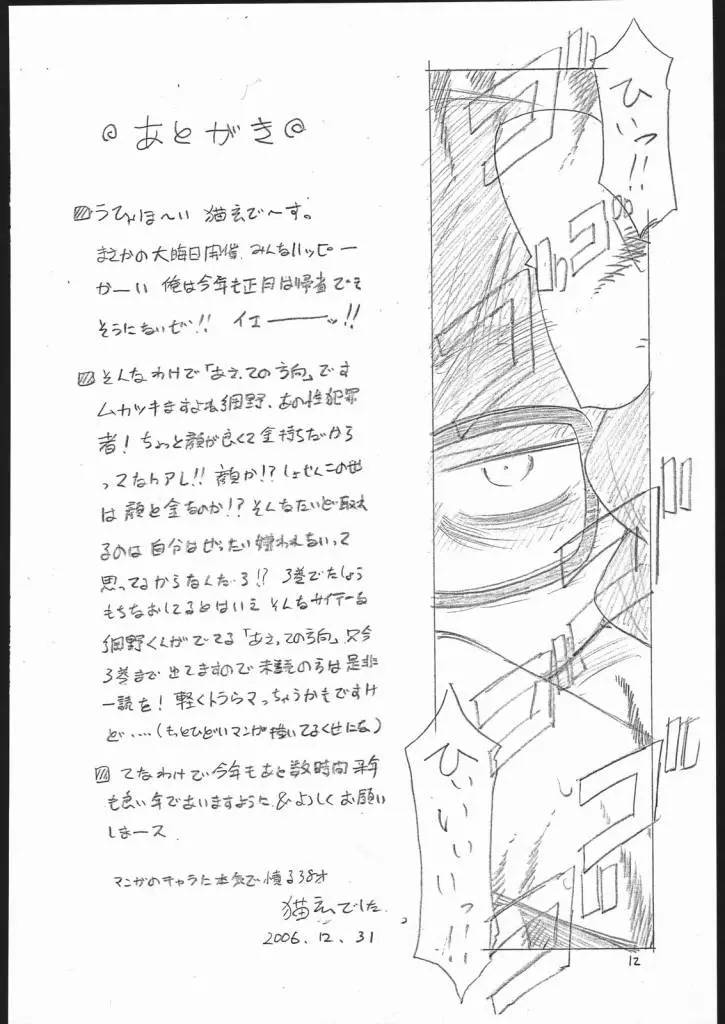 あとがき
うひょほ〜い 猫玄で〜す。
まさかの大晦日開催、みんなハッピー
かーい 俺は今年も正月は帰省でき
そうにないぜ!! イエーーーッ!!
そんなわけで「あさっての方向」です
ムカツキますよね網野、あの性犯罪
者! ちょっと顔が良くて金持ちだから
ってなんアレ!! 顔か!? しょせんこの世
は顔と金なのか!? そんなたいど取れ
るのは自分はぜったい嫌われないって
思ってるからなんだろ!? 3巻でたしょう
もちなおしてるとはいえ そんなサイテーな
網野くんがでてる「あさっての方向」只今
3巻まで出てますので未読の方は是非
一読を! 軽くトラウマっちゃうかもですけ
ど・・・・(もっとひどいマンガ描いてるくせにな)
てなわけで今年もあと数時間 来年
も良い年でありますように&よろしくお願い
しまース
マンガのキャラに本気で憤る38才
猫玄でした。
2006.12.31
ひいっ!!
ひいいいいっ!!
12